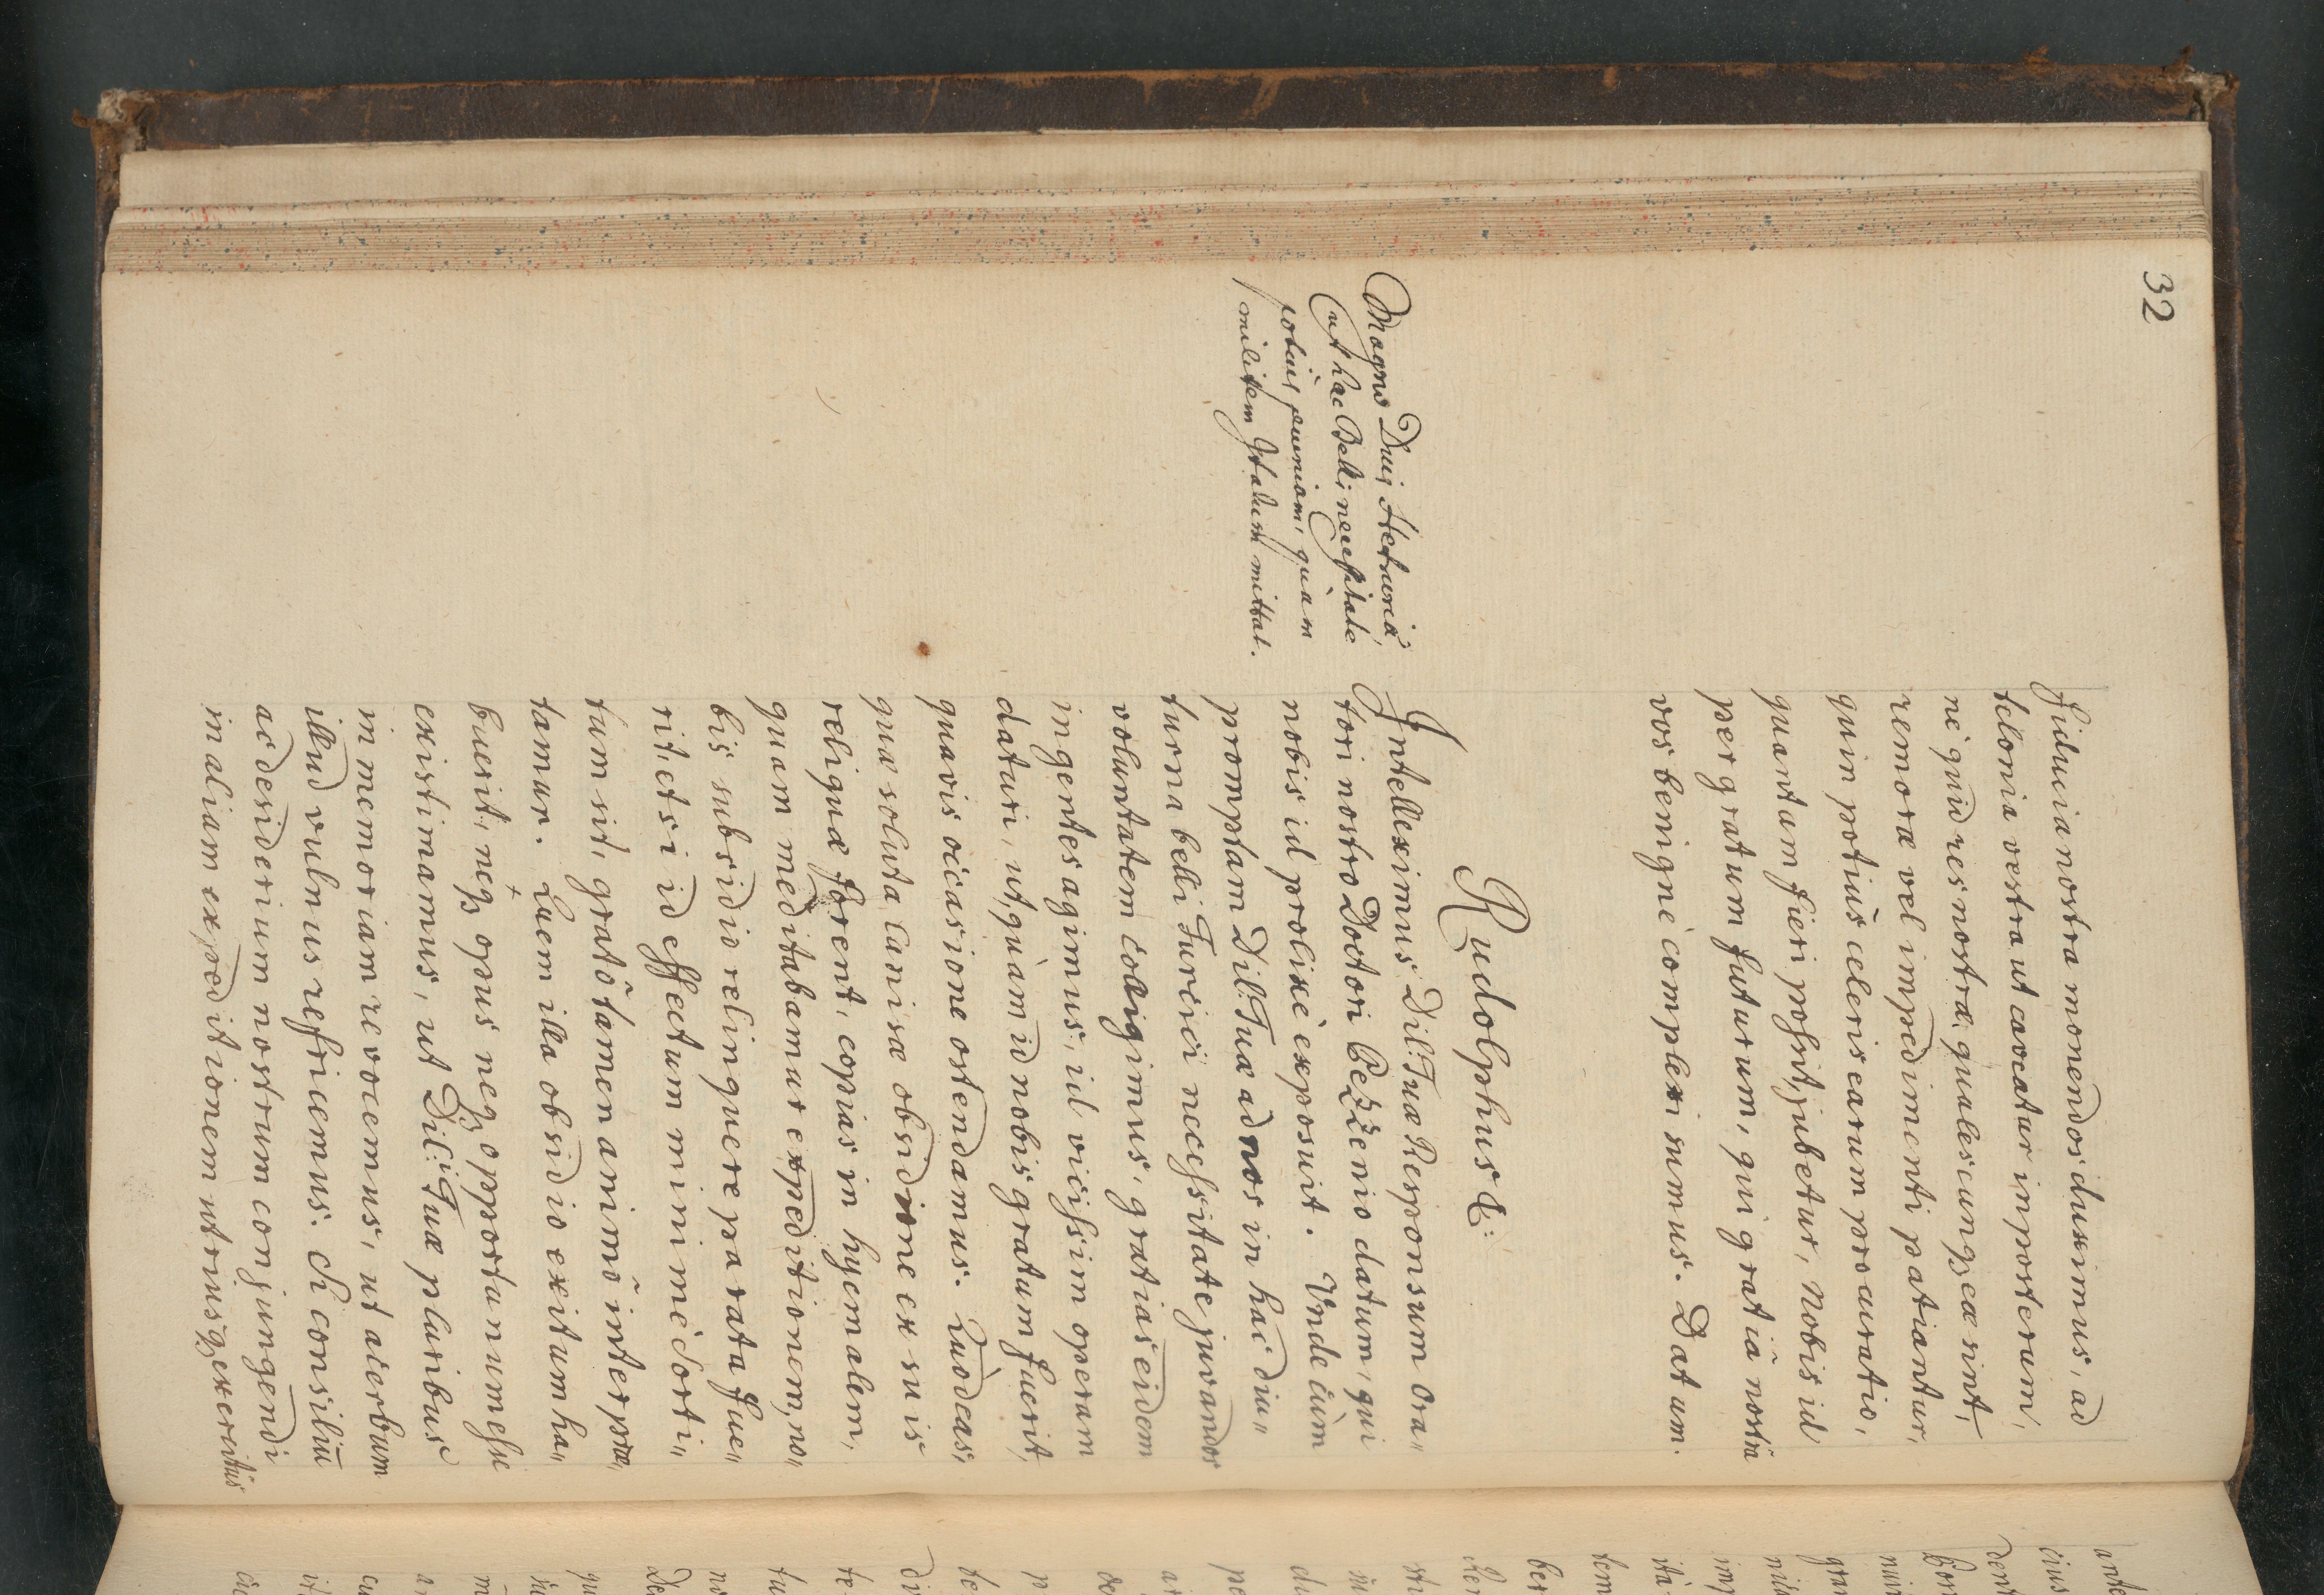 32
fiducia nostra monendos duximus, ad
telonia vestra ut caveatur inposterum,
nè quid res nostræ, qualescunqꝫ eæ sint,
remoræ vel impedimenti patiantur,
quin potiùs celeris earum procuratio,
quantum fieri possit, jubetur, Nobis id
pergratum futurum, qui gratiâ nostrâ
vos benignè complexi sumus. Datum.
Rudolphus &:
Magno Duci Hetruriæ,
ut hac Belli necessitate
potiùs pecuniam, quàm
militem Italum mittat.
Intelleximus Dil: Tuæ Responsum Ora„
tori nostro Doctori Pezzenio datum, qui
nobis id prolixè exposuit. Unde cùm
promptam Dil: Tuæ ad nos in hac diu„
turna belli Turcici necessitate juvandos
voluntatem colligimus, gratias eidem
ingentes agimus, id vicissim operam
daturi, ut, quàm id nobis gratum fuerit,
quavis occasione ostendamus. Quod eas,
quæ soluta Canisæ obsidione ex suis
reliquæ forent, copias in hyemalem,
quam meditabamur expeditionem, no„
bis subsidio relinquere parata fue„
rit, etsi id effectum minimè sorti„
tum sit, gratô tamen animô interpre„
tamur. Quem illa obsidio exitum ha„
buerit, neqꝫ opus neqꝫ opportunum esse
existimamus, ut Dil: Tuæ pluribus
in memoriam revocemus, ut acerbum
illud vulnus refricemus. Si consiliũ
ac desiderium nostrum conjungendi
in aliam expeditionem utriusqꝫ exercitûs